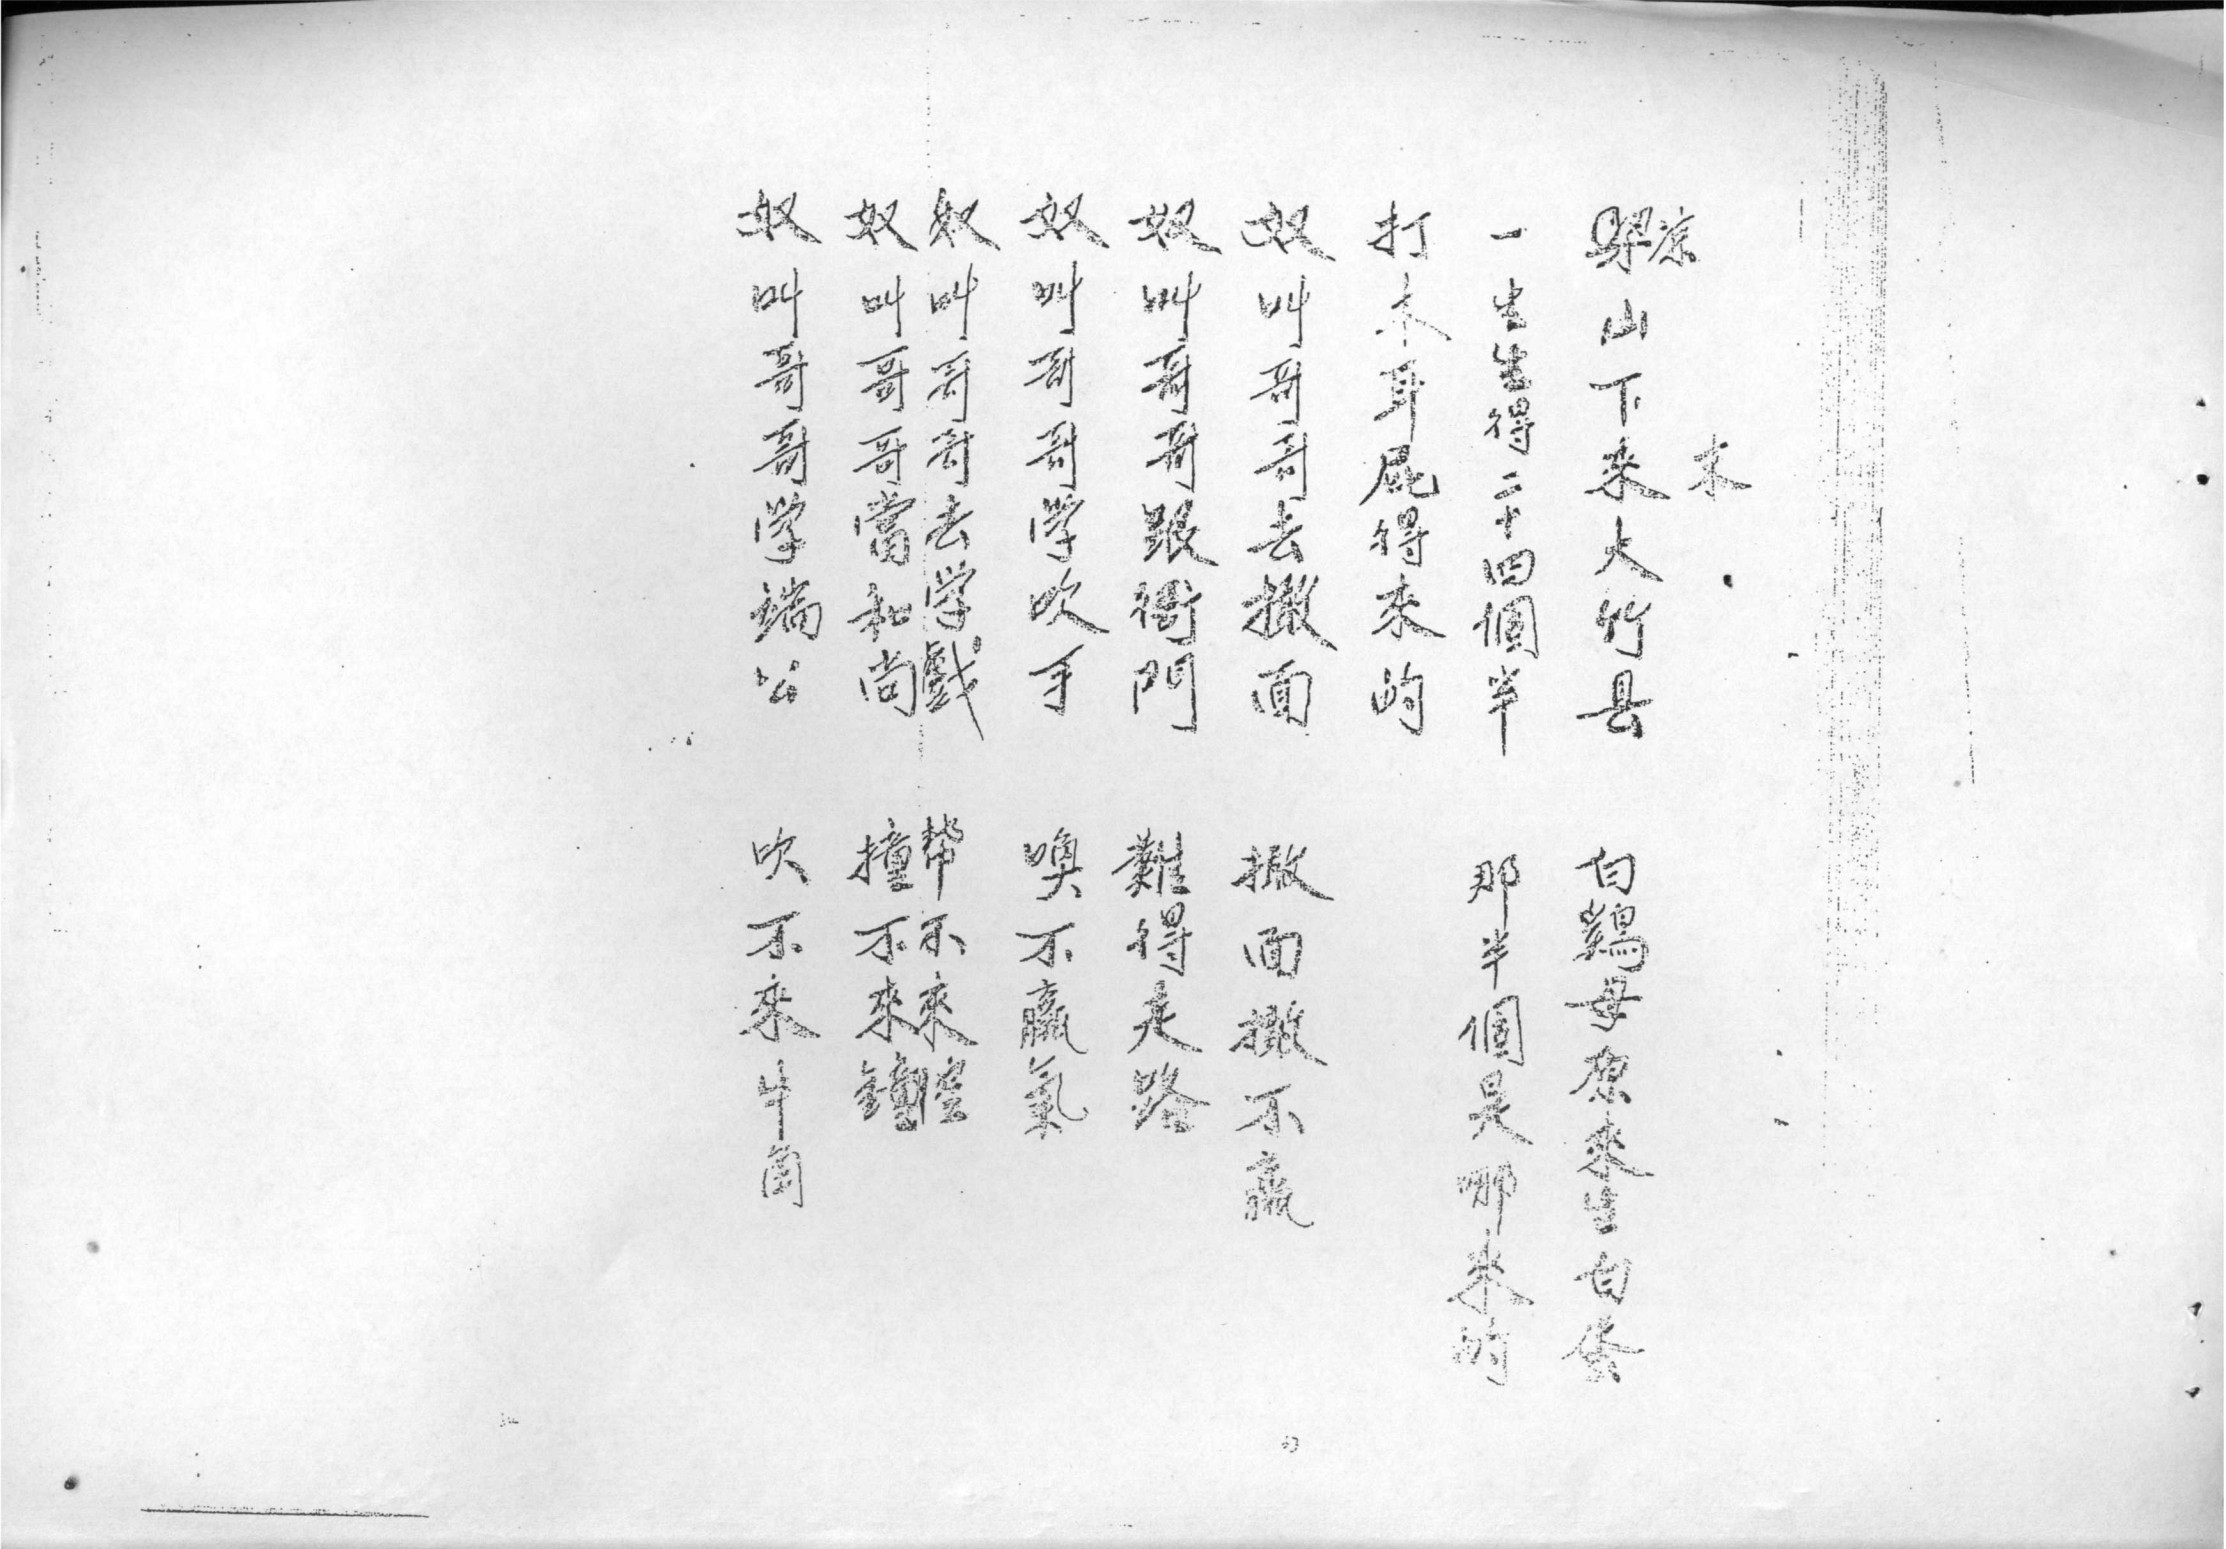 凉
木
梁山下来大竹县　白鷄母原來生白蛋
一生生得二十四個半　那半個是哪来的
打木耳屁得来的
奴叫哥哥去撒面　撒面撒不贏
奴叫哥哥跟衙門　難得走路
奴叫哥哥学吹手　嗅不贏氣
奴叫哥哥去学戲　幫不來腔
奴叫哥哥當和尚　撞不來鐘
奴叫哥哥学端公　吹不來牛角